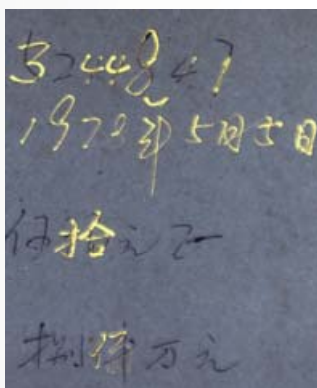 3244847
1978年5月5日
伍拾元正
捌万元